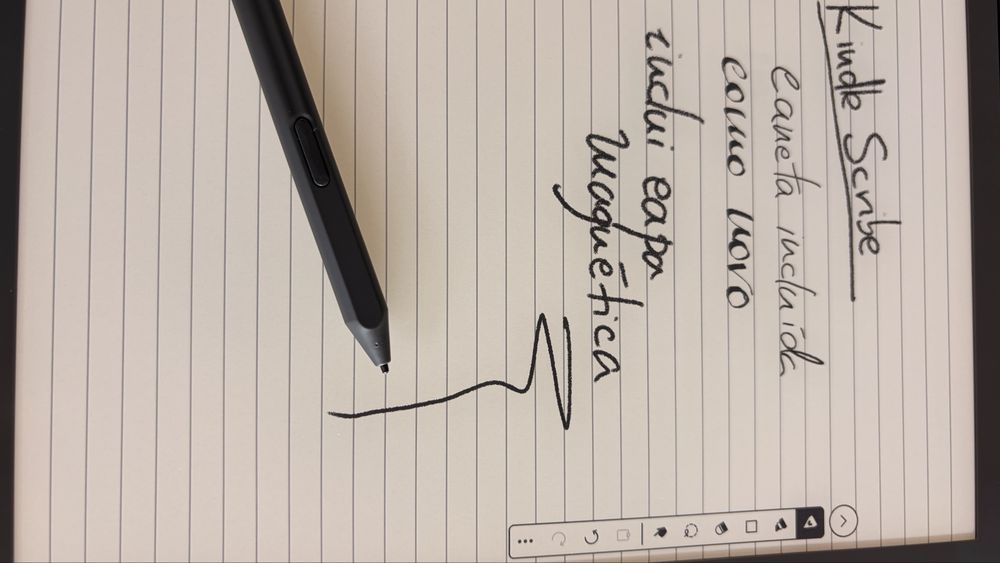 Kindle Scribe
caneta incluída
como novo
inclui capa
magnética